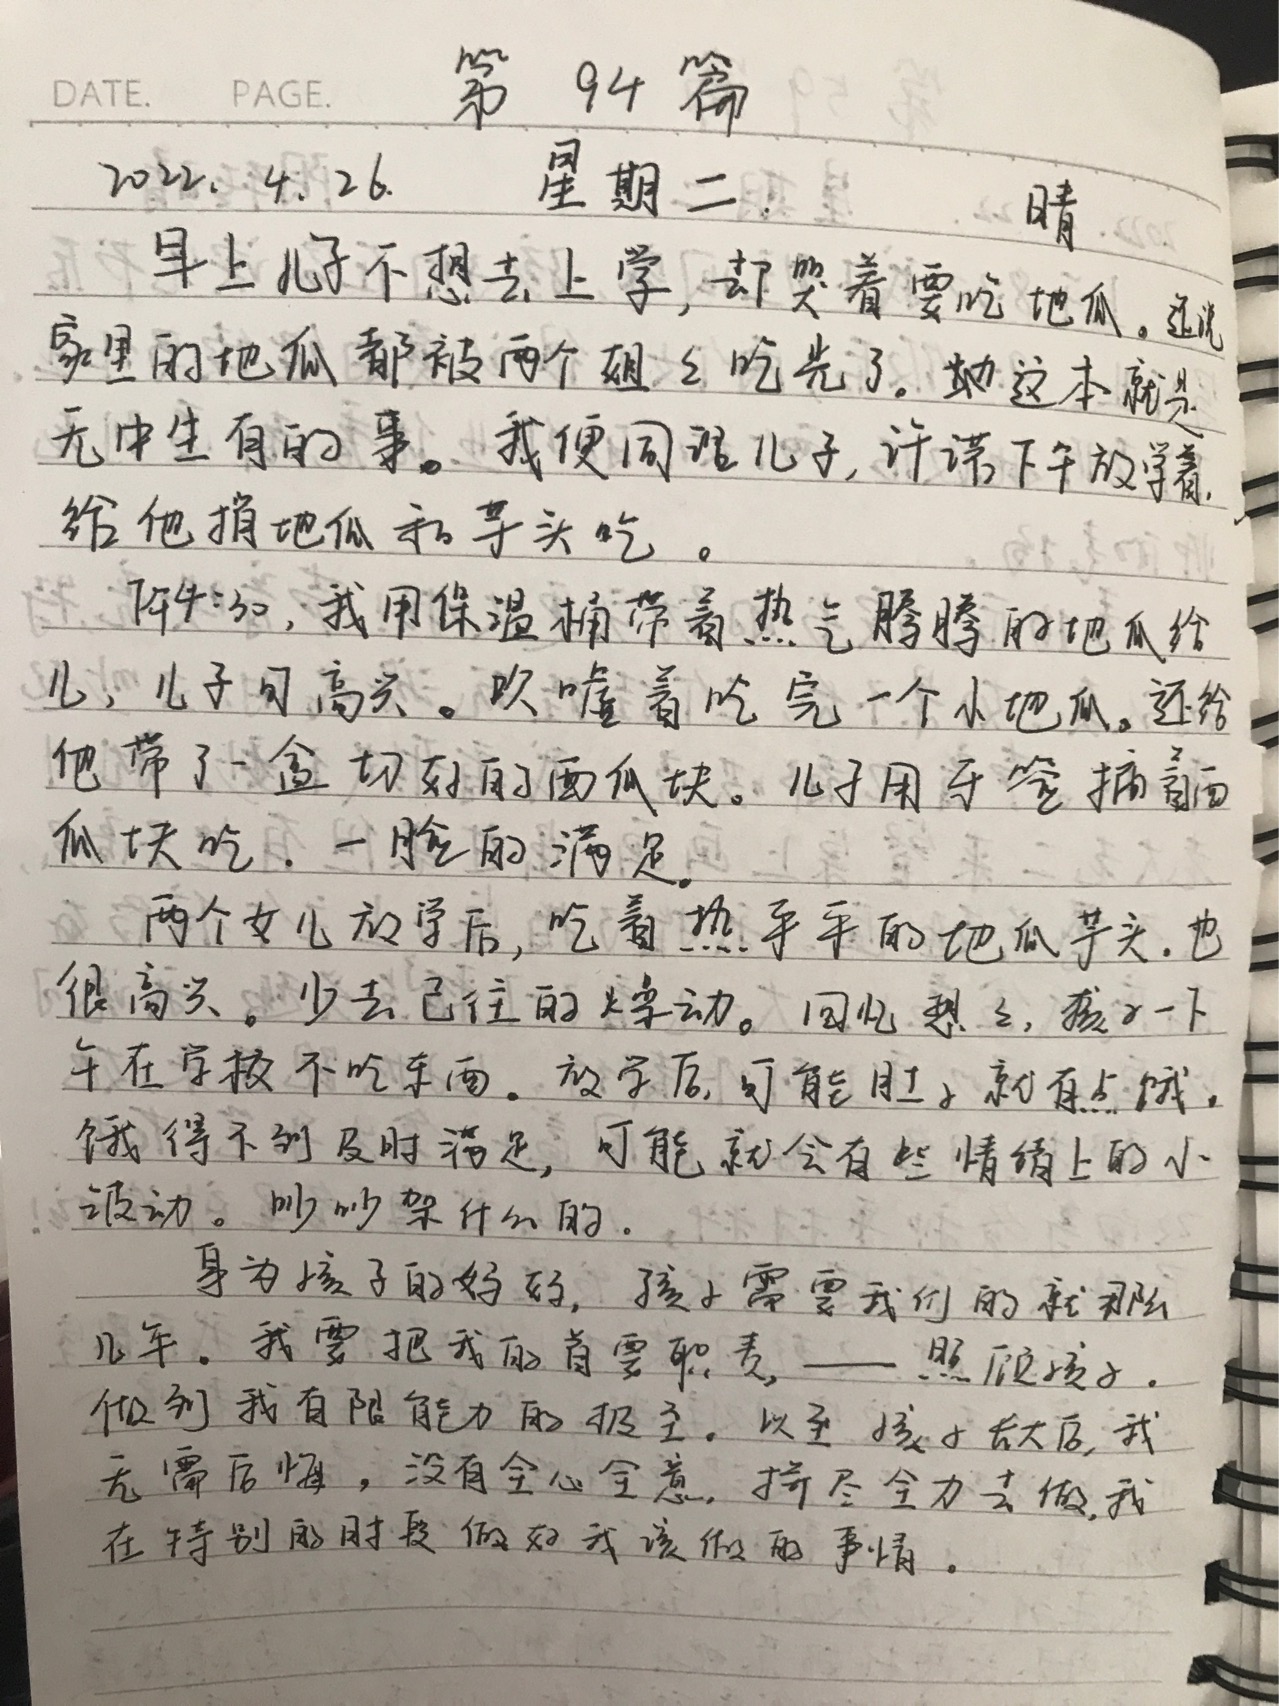 DATE. PAGE. 第 94 篇
2022. 4. 26. 星期二. 晴
早上儿子不想去上学,却哭着要吃地瓜。还说
家里的地瓜都被两个姐々吃先了。她这本就是
无中生有的事。我便同理儿子,许诺下午放学着,
给他捎地瓜和芋头吃。
下午4:30,我用保温桶带着热气腾腾的地瓜给
儿,儿子可高兴。吹嘘着吃完一个小地瓜。还给
他带了一盒切好的西瓜块。儿子用牙签摘着西
瓜块吃.一脸的满足。
两个女儿放学后,吃着热乎乎的地瓜芋头.也
很高兴。少去已往的燥动。回忆想々,孩子一下
午在学校不吃东西。放学后,可能肚子就有点饿,
饿得不到及时满足,可能就会有些情绪上的小
波动。吵吵架什么的.
身为孩子的妈妈,孩子需要我们的就那么
几年。我要把我的首要职责,——照顾孩子.
做到我有限能力的极至。以至孩子长大后,我
无需后悔,没有全心全意,拼尽全力去做,我
在特别的时段做好我该做的事情。